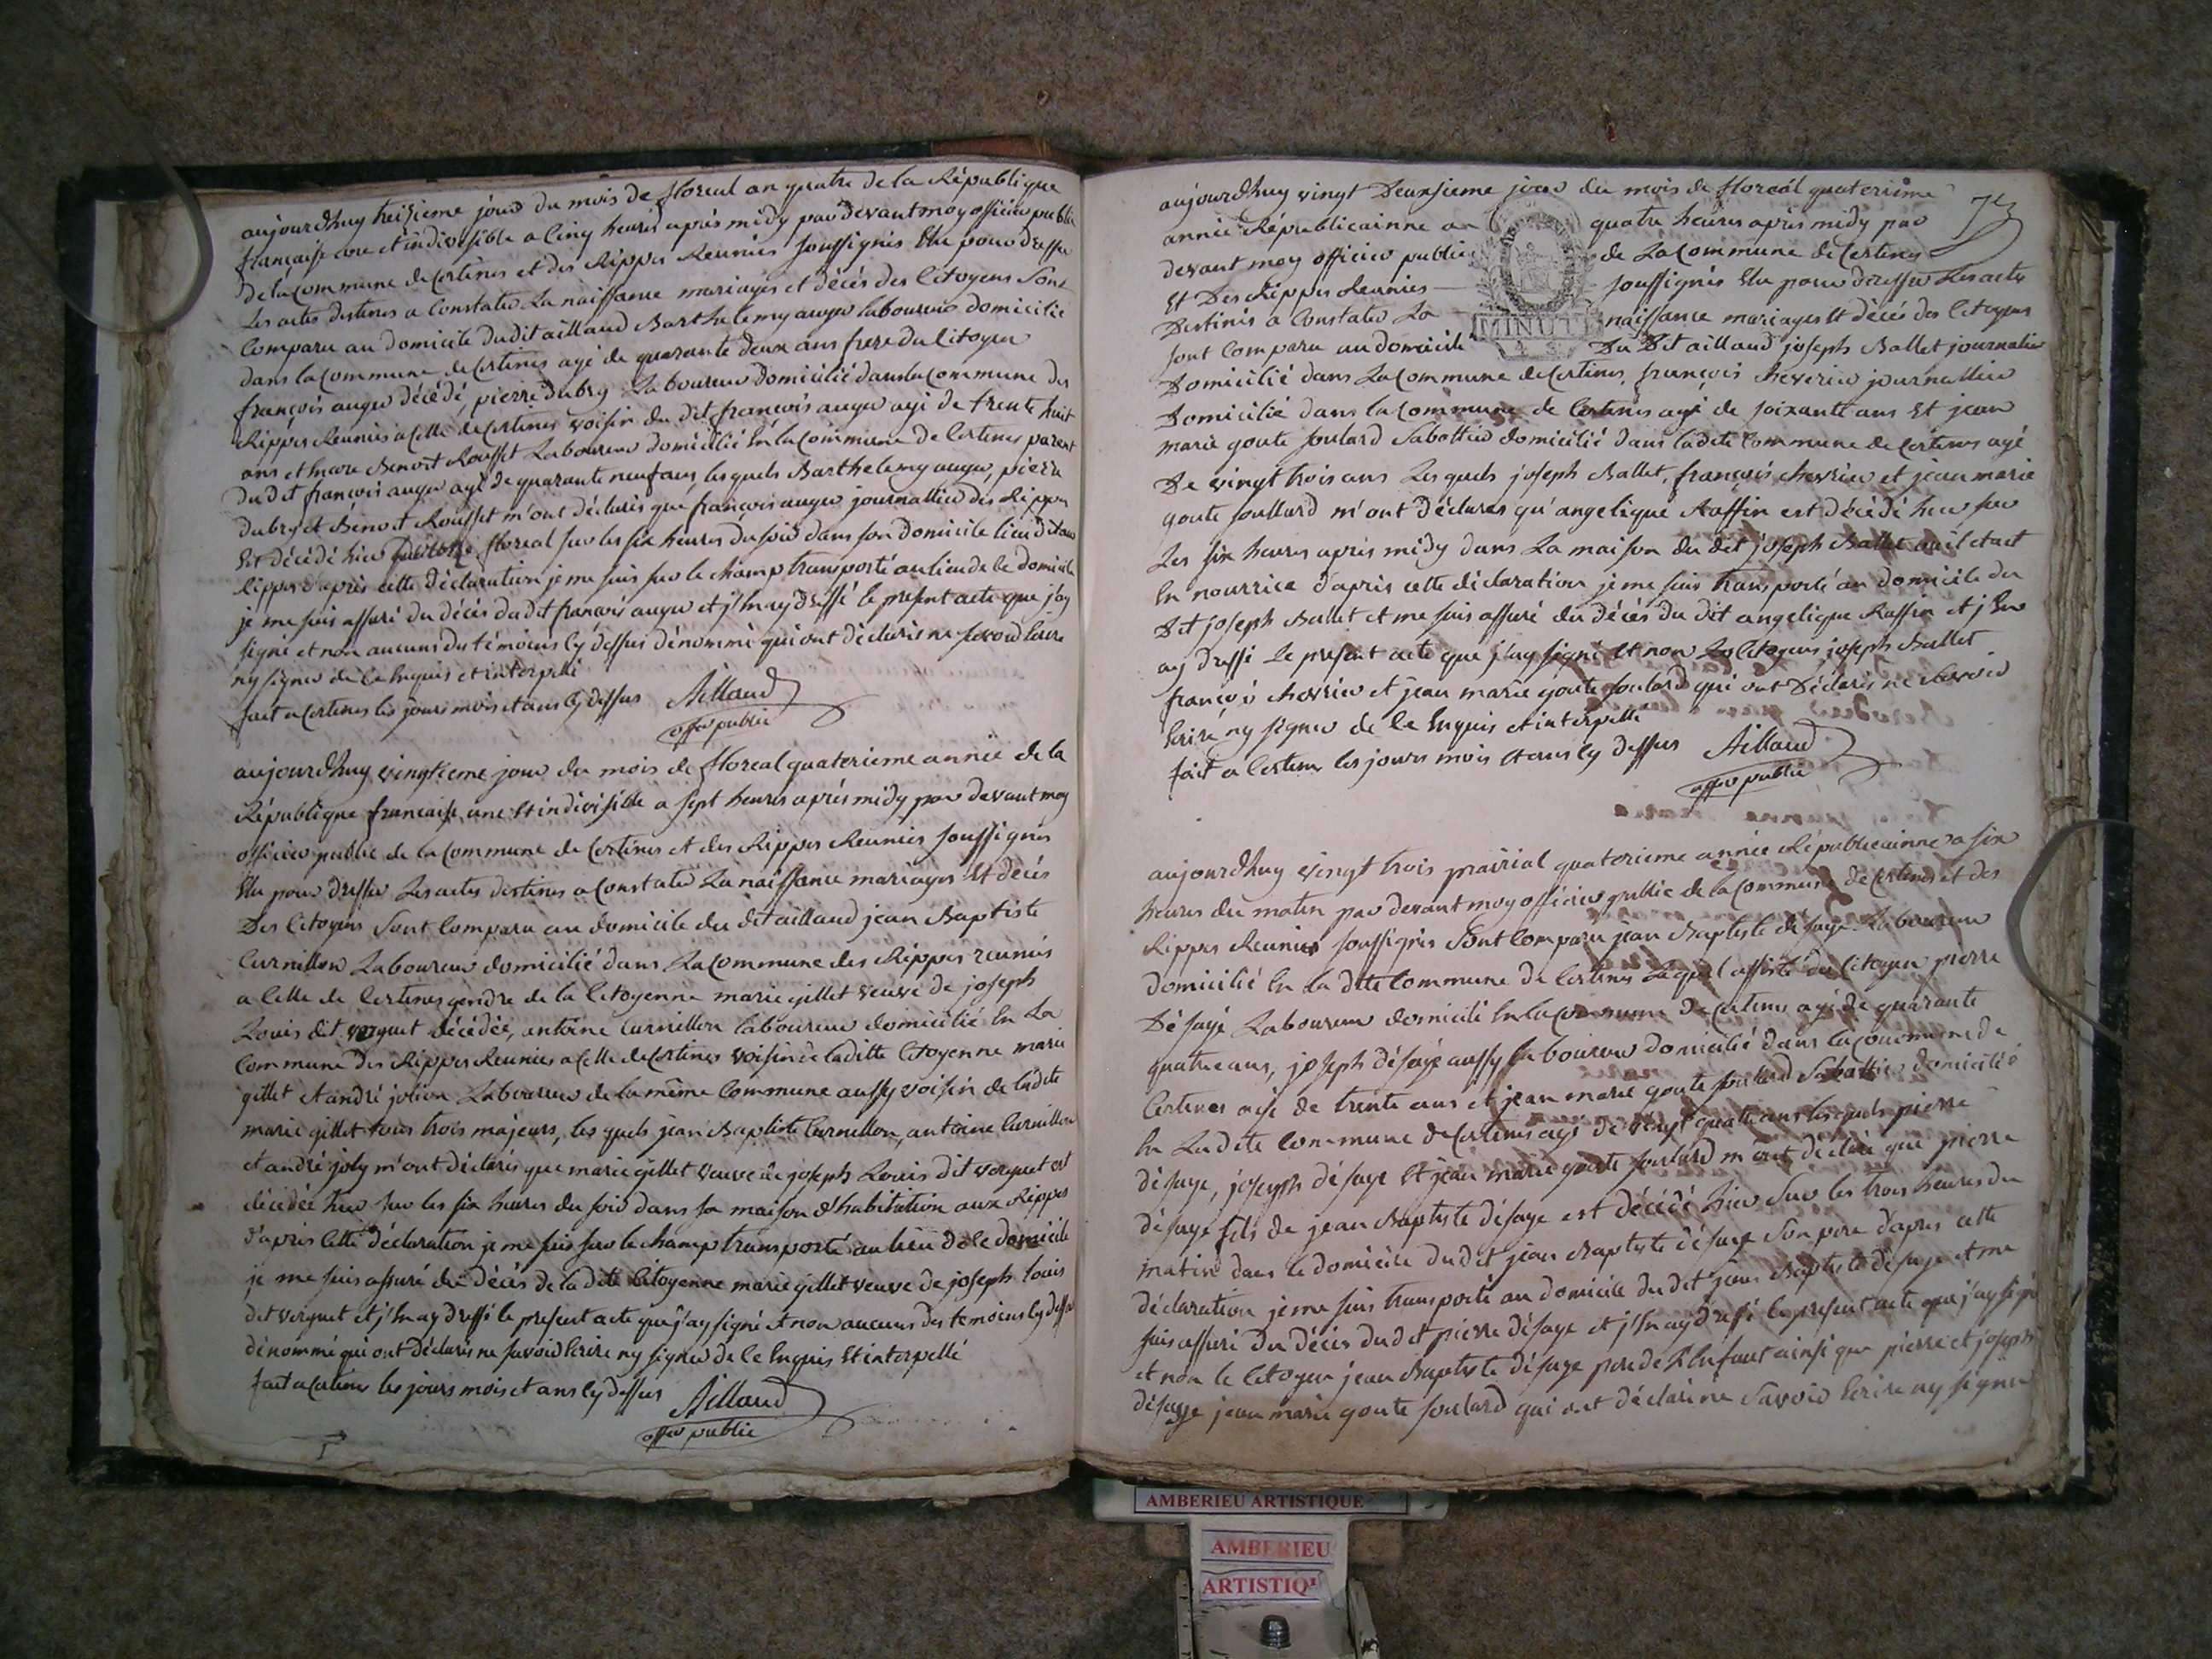 aujourdhuy treizieme jour du mois de floreal an quatre de la République
francaise une et indivisible a cinq heures après midy par devant moy officier public
de la commune de Certines et des Rippes Reunies soussignés Elu pour dresser
Les actes destines a Constater La naissance mariages et décés des Citoyens Sont
Comparu au domicile du dit aillaud Barthelemy auger laboureur domicilié
dans la commune de Certines agé de quarante deux ans frere du Citoyen
françois auger décédé, pierre Dubry Laboureur domicilié dans la Commune des
Rippes Reunies a Celle de Certines voisin du dit françois auger agé de trente huit
ans et encore Benoit Rousset Laboureur domicillié En la Commune de Certines parent
du dit françois auger agé de quarante neuf ans, les quels Barthelemy auger, pierre
Dubry et Benoit Rousset m'ont déclarés que françois auger journallier des Rippes
Est décédé hier floreal sur les six heures du soir dans son domicile lieu dit aux
Rippes d'après cette déclaration je me suis sur le champ transporté au lieu de le domicile
je me suis assuré du décès du dit françois auger et j'En ay dressé le present acte que j'ay
signé et non aucuns des témoins Cy dessus dénommé qui ont déclarés ne savoir Ecrire
ny signer de Ce Enquis et interpellé
fait a Certines les jours mois et ans Cy dessus Aillaud
offer public
aujourdhuy vingtieme jour du mois de floreal quaterieme année de la
République francaise une Et indivisible a sept heures après midy par devant moy
officier public de la Commune de Certines et des Rippes Reunies soussignés
Elu pour dresser Les actes destines a Constater La naissance mariages Et décés
Des Citoyens Sont Comparu au domicile du dit aillaud jean Baptiste
Curnillon Laboureur domicilié dans La Commune des Rippes reunies
a Celle de Certines gendre de la Citoyenne marie gillet veuve de joseph
Louis dit verguet décédée, antoine Curnillon laboureur domicilié En La
Commune des Rippes Reunies a Celle de Certines voisin de la ditte Citoyenne marie
gillet Et andré Laboureur de la même Commune aussy voisin de ladite
marie gillet tous trois majeurs, les quels jean Baptiste Curnillon, antoine Curnillon
et andré joly m'ont déclarés que marie gillet veuve de joseph Louis dit verguet est
décédée hier sur les six heures du soir dans sa maison d'habitation aux Rippes
d'après Cette déclaration je me suis sur le champ transporté au lieu de le domicile
je me suis assuré du décés de la dite Citoyenne marie gillet veuve de joseph Louis
dit verguet et j'En ay dressé le present acte que j'ay signé et non aucuns des temoins Cy dessus
dénommé qui ont déclarés ne savoir Ecrire ny signer de Ce Enquis Et interpellé
fait a Certines les jours mois et ans Cy dessus Aillaud
offer public
aujourdhuy vingt Deuxsieme jour du mois de floreál quaterième
année Républicainne a quatre heures après midy par
devant moy officier public de La Commune de Certines
Et Des Rippes Reunies soussignés Elu pour dresser Les actes
Destinés a Constater La naissance mariages Et décés des Citoyens
sont Comparu au domicile Du Dit aillaud joseph Ballet journalier
Domicilié dans La Commune de Certines, françois chevrier journallier
Domicilié dans la Commune de Certines agé de soixante ans Et jean
marie goute soulard Sabottier domicilié dans ladite Commune de Certines agé
De vingt trois ans Les quels joseph Ballet, françois chevrier et jean marie
goute soullard m'ont déclarés qu'angelique Raffin est décédé hier sur
Les six heures après midy dans La maison du dit joseph Ballet ou il etait
En nourrice d'après cette déclaration je me suis transporté au domicile du
Dit joseph Ballet et me suis assuré du décés du dit angelique Raffin et j'En
ay dressé Le present acte que j'ay signé Et non Les Citoyens joseph Ballet
françois chevrier et jean marie goute soulard qui ont Déclarés ne Savoir
Ecrire ny signer de Ce Enquis et interpellé
fait a Certines les jours mois et ans Cy dessus Aillaud
offer public
75
MINUTE
aujourdhuy vingt trois prairial quaterieme année Républicainne a six
heures du matin par devant moy officier public de la Commune de Certines et des
Rippes Reunies soussignés Sont Comparu jean Baptiste désage Laboureur
domicilié En La dite Commune de Certines Lequel assisté du Citoyen pierre
Désage Laboureur domicilié En la Commune De Certines agé de quarante
quatre ans, joseph désage aussy Laboureur domicilié dans la Commune de
Certines agé de trente ans et jean marie goute soulard Sabottier domicilié
En La dite Commune de Certines agé de vingt quatre ans les quels pierre
désage, joseph désage Et jean marie goute soulard m'ont déclaré que pierre
désage fils de jean Baptiste désage est décédé hier Sur les trois heures du
matin dans le domicile du dit jean Baptiste désage Son pere d'après cette
déclaration je me suis transporté au domicile du dit jean Baptiste désage et me
suis assuré du décés du dit pierre désage et j'En ay dressé le present acte que j'ay signé
et non le Citoyen jean Baptiste désage pere de L'Enfant ainsi que pierre et joseph
désage jean marie goute soulard qui ont déclaré ne Savoir Ecrire ny signer
AMBERIEU ARTISTIQUE
AMBERIEU
ARTISTIQ